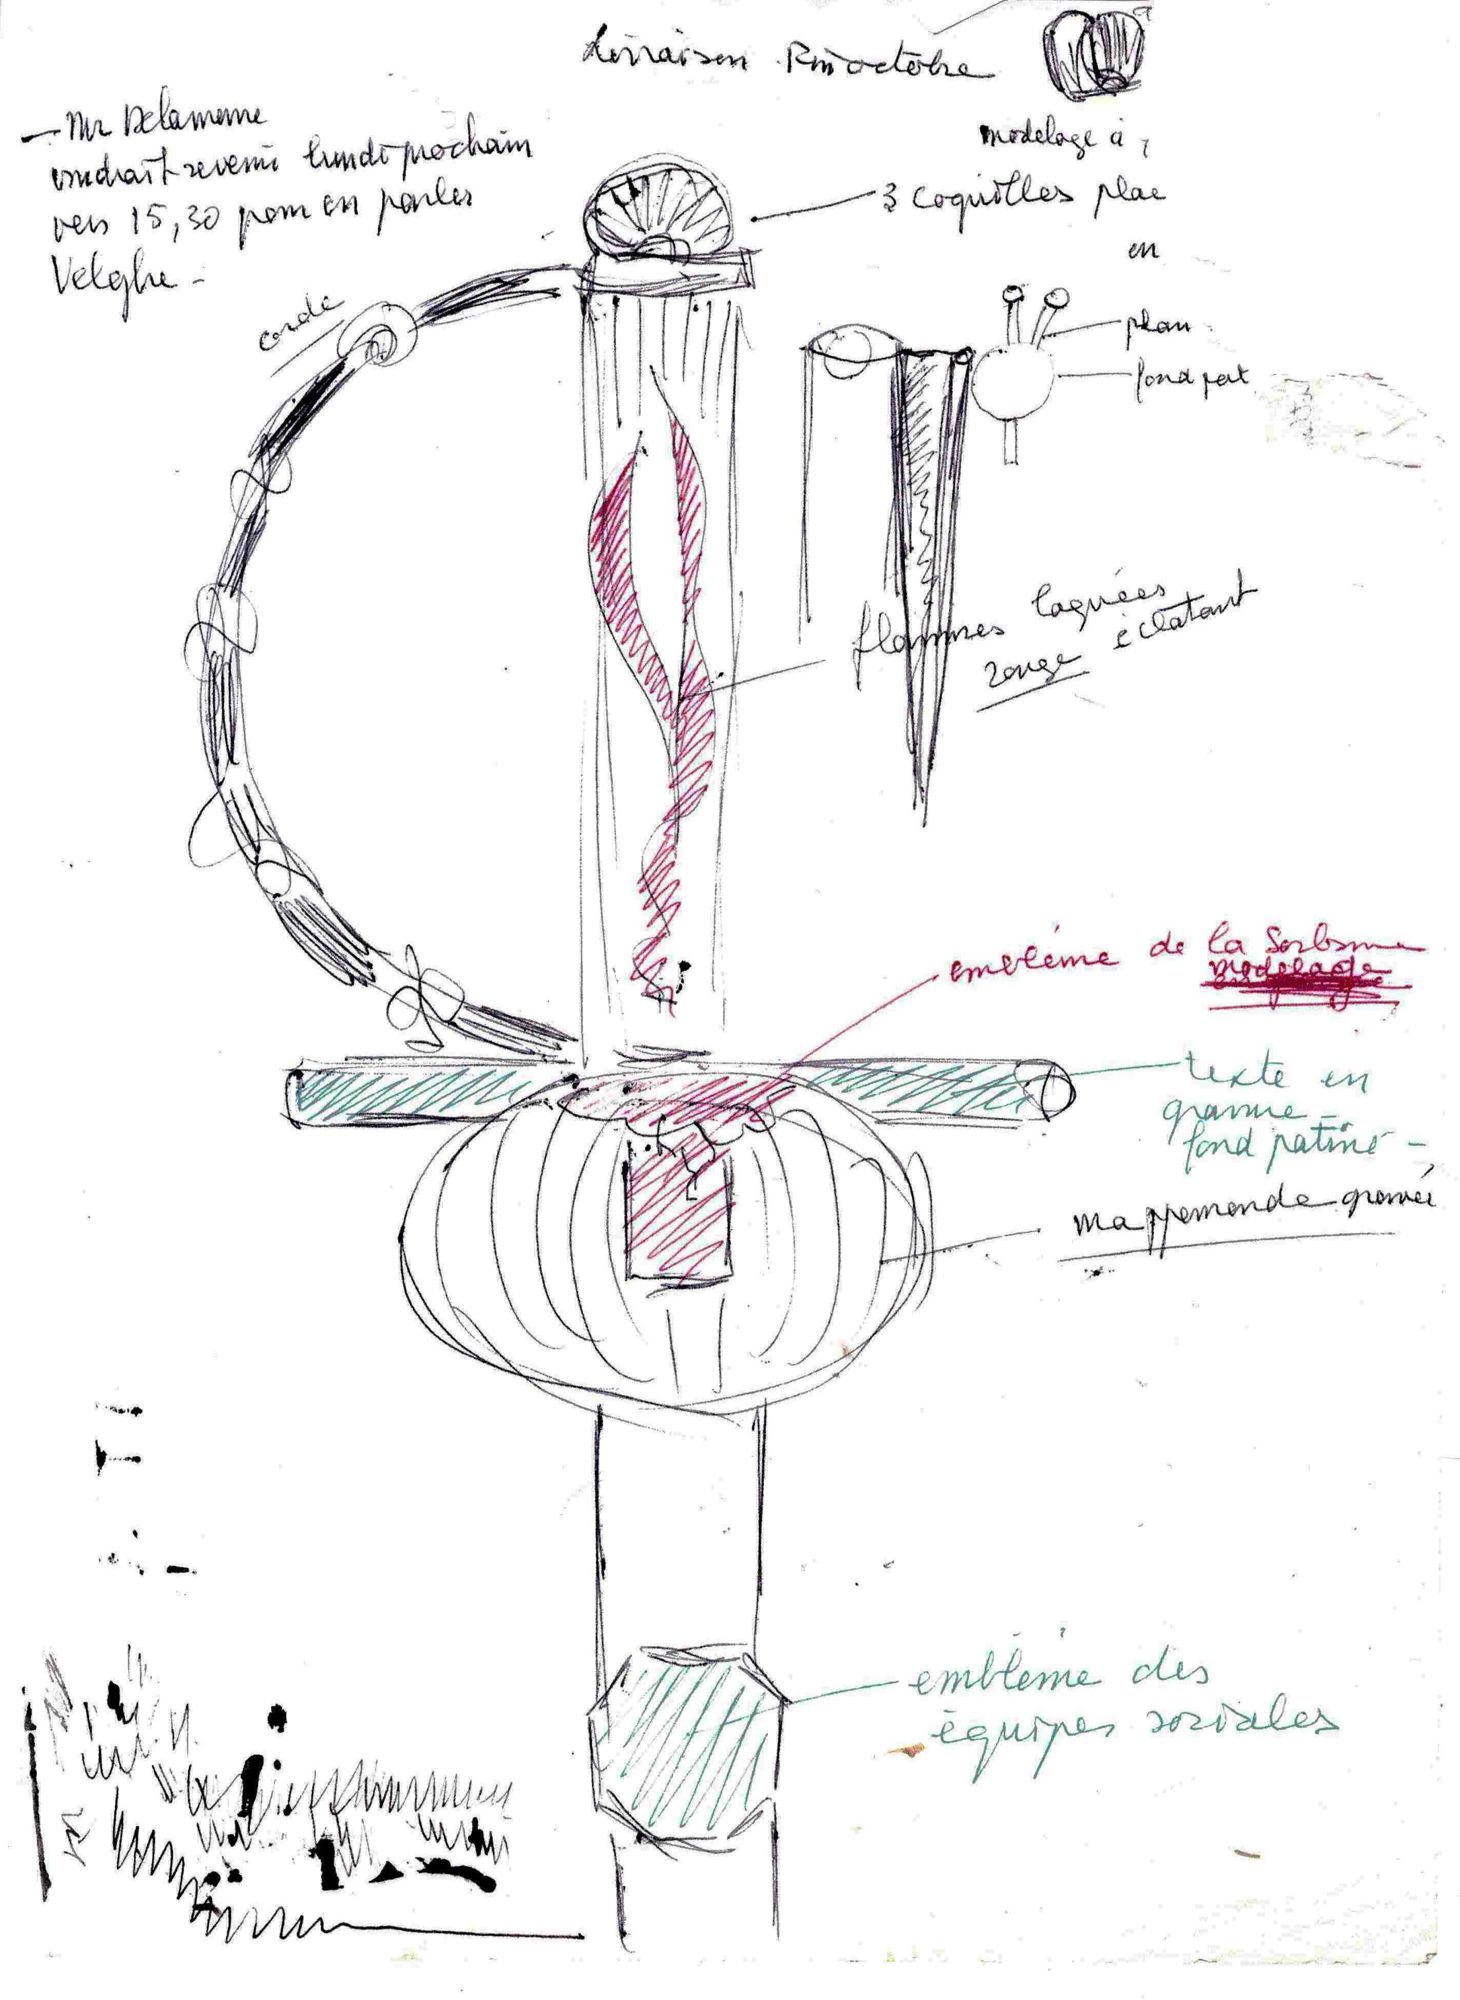 livraison fin octobre
— Mr Delamarre
voudrait revenir lundi prochain
vers 15,30 pour en parler
Velghe -
modelage à
3 coquilles plac
en
corde
plan
fond pat
flammes laquées
rouge éclatant
emblème de la Sorbonne
modelage
texte en
gravure -
fond patiné -
mappemonde gravée
emblème des
équipes sociales